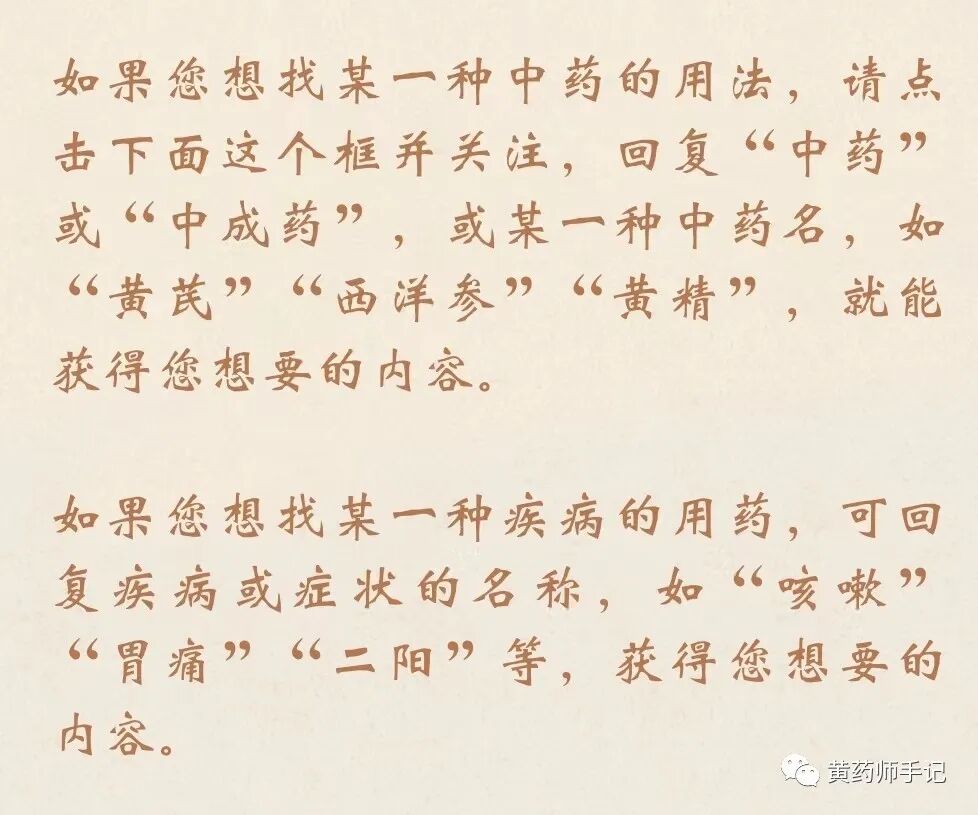 如果您想找某一种中药的用法，请点
击下面这个框并关注，回复“中药”
或“中成药”，或某一种中药名，如
“黄芪”“西洋参”“黄精”，就能
获得您想要的内容。
如果您想找某一种疾病的用药，可回
复疾病或症状的名称，如“咳嗽”
“胃痛”“二阳”等，获得您想要的
内容。
黄药师手记